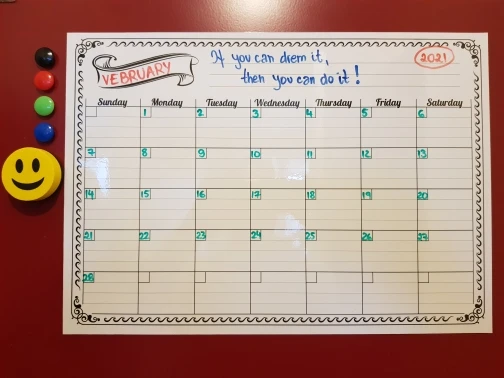 VEBRUARY
If you can drem it,
then you can do it!
2021
Sunday Monday Tuesday Wednesday Thursday Friday Saturday
1 2 3 4 5 6
7 8 9 10 11 12 13
14 15 16 17 18 19 20
21 22 23 24 25 26 27
28